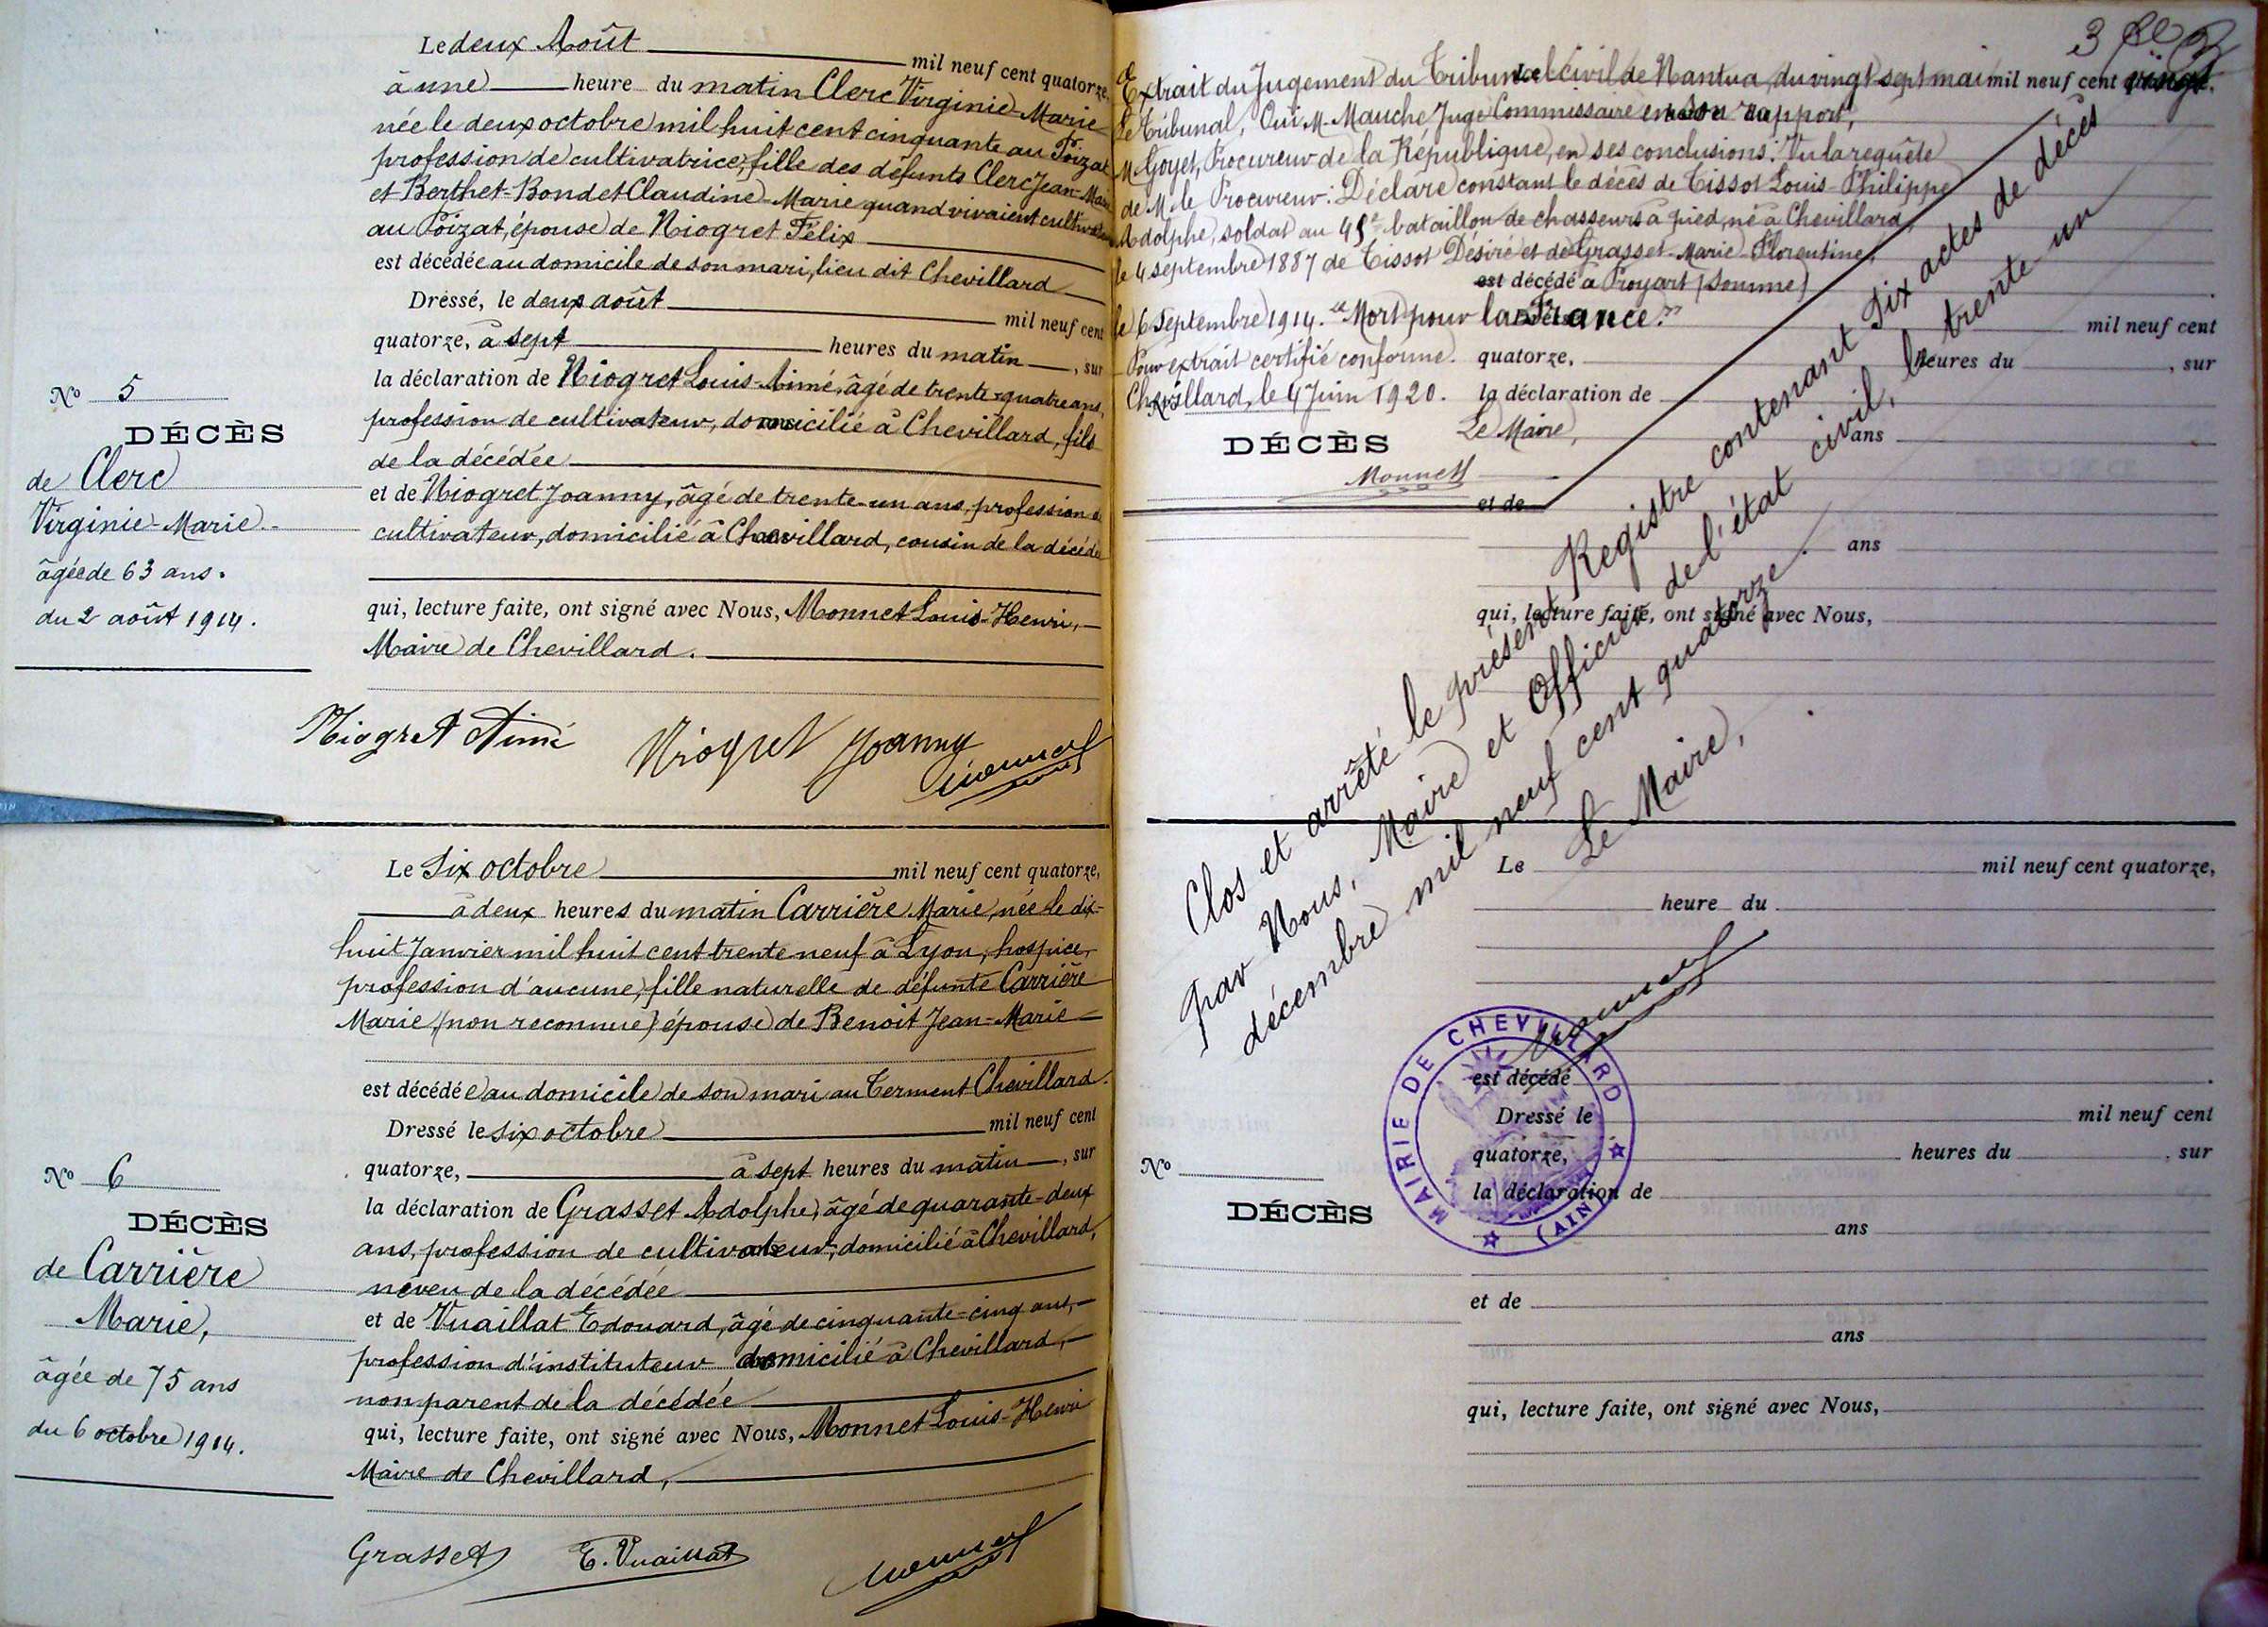 Le deux Août mil neuf cent quatorze,
à une heure du matin Clerc Virginie-Marie
née le deux octobre mil huit cent cinquante au Poizat
profession de cultivatrice, fille des défunts Clerc Jean-Marie
et Berthet-Bondet Claudine-Marie quand vivaient cultivateurs
au Poizat, épouse de Niogret Félix
est décédée au domicile de son mari, lieu dit Chevillard
Dressé, le deux août mil neuf cent
quatorze, à sept heures du matin, sur
la déclaration de Niogret Louis-Aimé, âgé de trente-quatre ans,
profession de cultivateur, domicilié à Chevillard, fils
de la décédée
et de Niogret Joanny, âgé de trente-un ans, profession de
cultivateur, domicilié à Chevillard, cousin de la décédée
qui, lecture faite, ont signé avec Nous, Monnet Louis-Henri,
Maire de Chevillard.
No 5
DÉCÈS
de Clerc
Virginie-Marie
âgée de 63 ans.
du 2 août 1914.
Niogret Aimé Niogret Joanny Monnet
Le Six octobre mil neuf cent quatorze,
à deux heures du matin Carrière Marie, née le dix-
huit Janvier mil huit cent trente neuf à Lyon, hospice,
profession d'aucune, fille naturelle de défunte Carrière
Marie, (non reconnue) épouse de Benoit Jean-Marie
est décédée au domicile de son mari au Terment Chevillard.
Dressé le six octobre mil neuf cent
quatorze, à sept heures du matin, sur
la déclaration de Grasset Adolphe, âgé de quarante-deux
ans, profession de cultivateur, domicilié à Chevillard,
neveu de la décédée
et de Vuaillat Edouard, âgé de cinquante-cinq ans,
profession d'instituteur domicilié à Chevillard,
non parent de la décédée
qui, lecture faite, ont signé avec Nous, Monnet Louis-Henri
Maire de Chevillard,
No 6
DÉCÈS
de Carrière
Marie,
âgée de 75 ans
du 6 octobre 1914.
Grasset E. Vuaillat Monnet
3
Extrait du Jugement du Tribunal civil de Nantua, du vingt sept mai mil neuf cent vingt.
Le Tribunal, Ouï M. Mauche Juge Commissaire en son rapport,
M Goyet, Procureur de la République, en ses conclusions: Vu la requête
de M. le Procureur: Déclare constant le décès de Tissot Louis-Philippe
Adolphe, soldat au 45e bataillon de chasseurs à pied, né à Chevillard
le 4 septembre 1887 de Tissot Désiré et de Grasset Marie-Florentine,
est décédé à Proyart (Somme)
le 6 Septembre 1914. "Mort pour la France." mil neuf cent
Pour extrait certifié conforme. quatorze, heures du , sur
Chevillard, le 4 Juin 1920. la déclaration de
Le Maire, ans
DÉCÈS
Monnet
et de
ans
qui, lecture faite, ont signé avec Nous,
Clos et arrêté le présent Registre contenant six actes de décès
par Nous, Maire et Officier de l'état civil, le trente-un
décembre mil neuf cent quatorze.
Le Maire,
Monnet
Le mil neuf cent quatorze,
heure du
est décédé
Dressé le mil neuf cent
quatorze, heures du , sur
la déclaration de
ans
et de
ans
qui, lecture faite, ont signé avec Nous,
No
DÉCÈS
MAIRIE DE CHEVILLARD
(AIN)